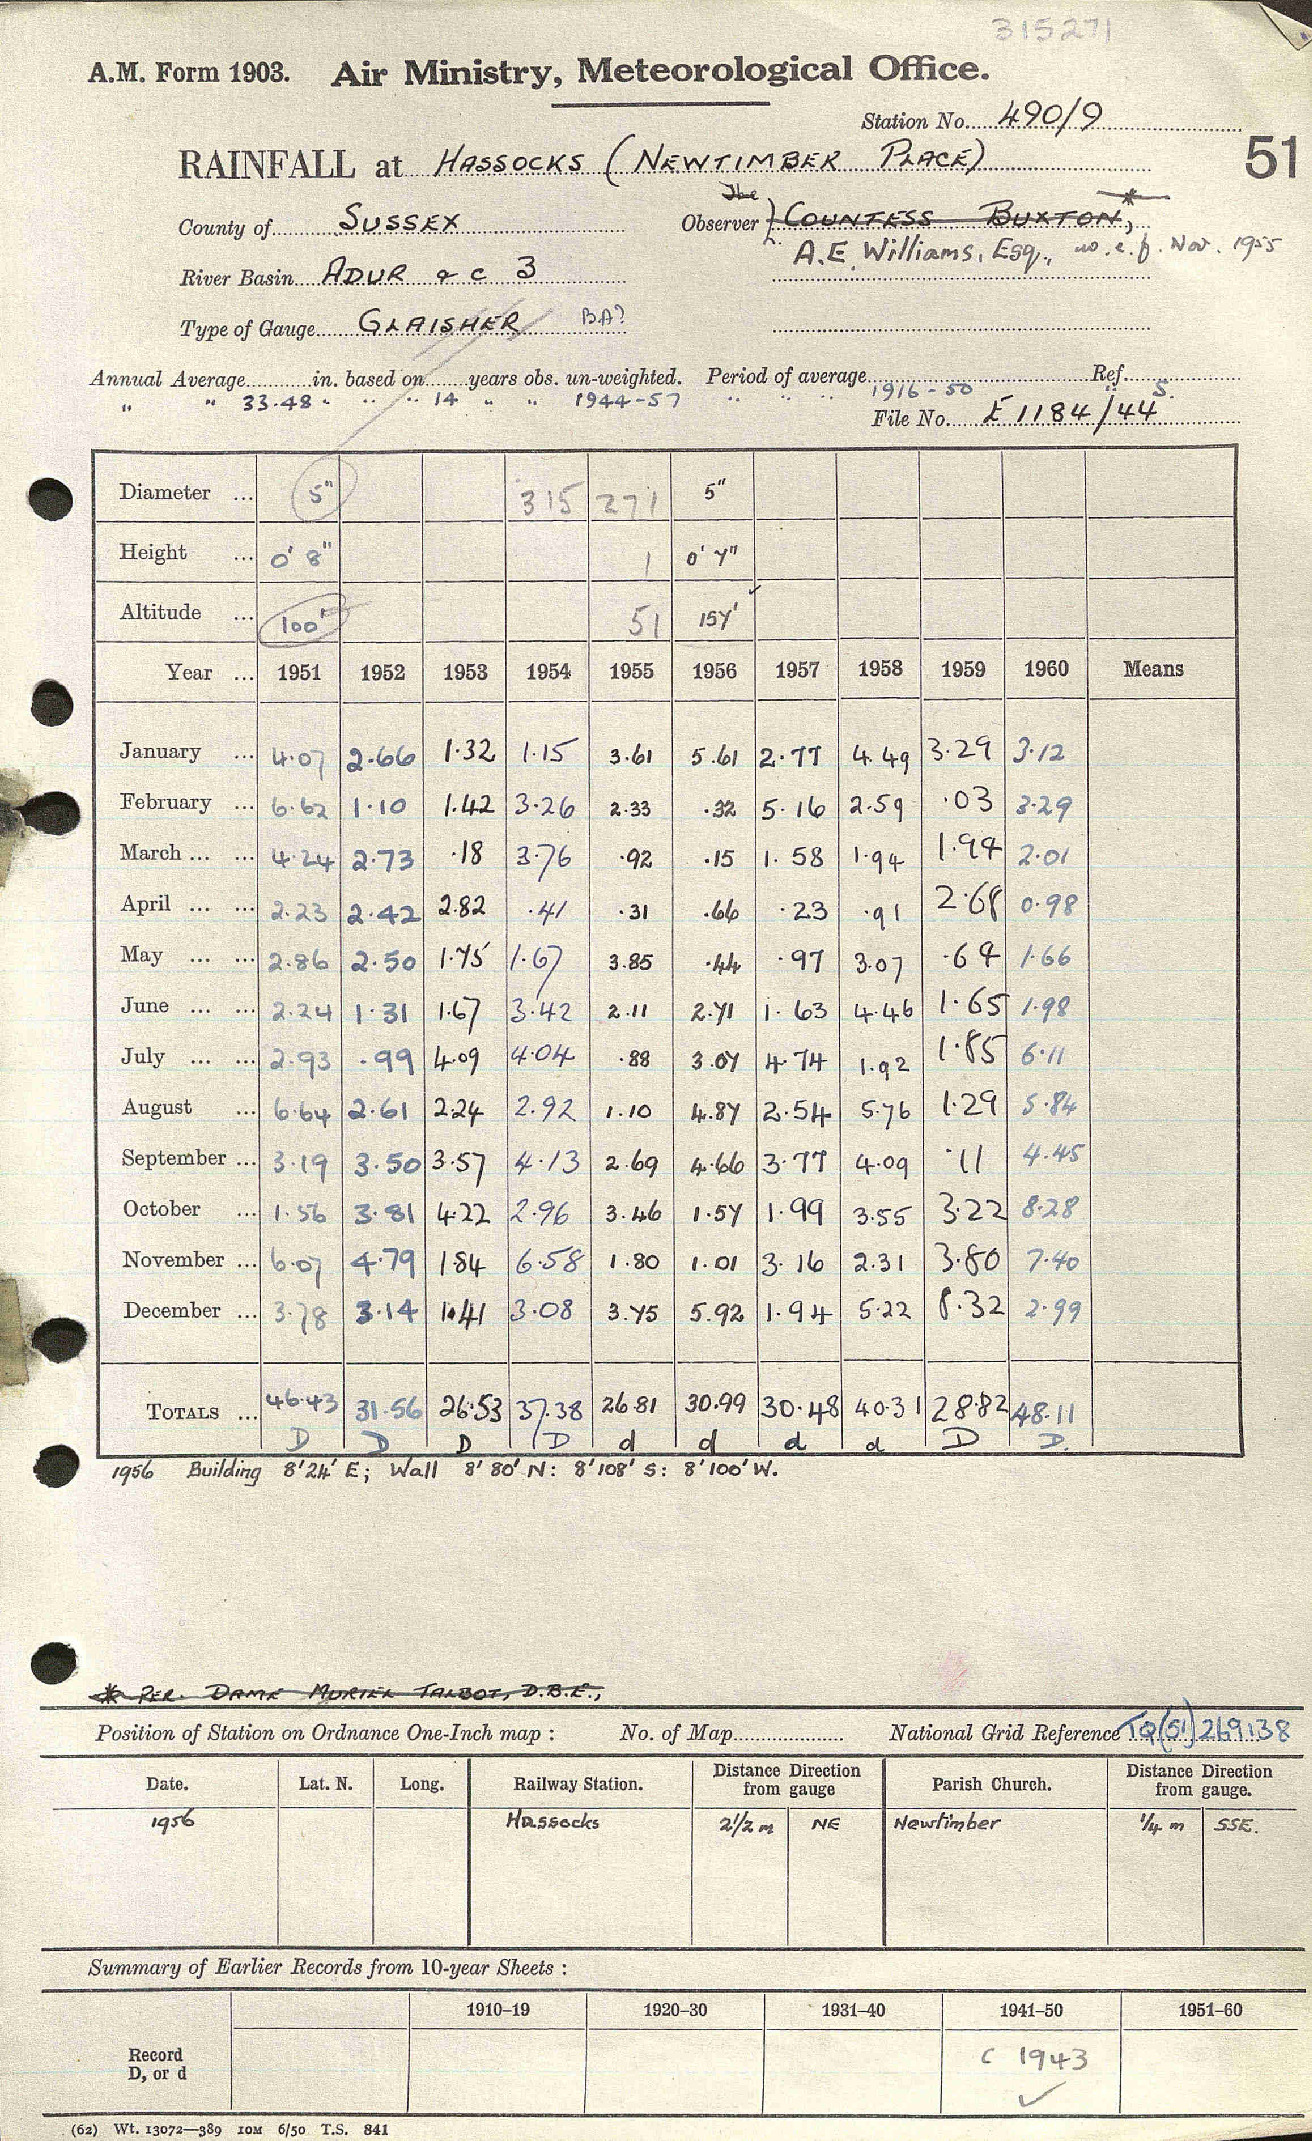 315271
A.M. Form 1903. Air Ministry, Meteorological Office.
Station No. 490/9
51
RAINFALL at HASSOCKS (NEWTIMBER PLACE)
The
County of SUSSEX Observer COUNTESS BUXTON, *
A.E. Williams, Esq., w.e.f. Nov. 1955
River Basin ADUR & C 3
Type of Gauge GLAISHER BA?
Annual Average in. based on years obs. un-weighted. Period of average Ref.
" " 33.48 " " " 14 " " 1944-57 " " " 1916-50 " S.
File No. E 1184/44
Diameter ... 5" 315 271 5"
Height ... 0' 8" 1 0' 7"
Altitude ... 100' 51 157' ✓
Year ... 1951 1952 1953 1954 1955 1956 1957 1958 1959 1960 Means
January ... 4.07 2.66 1.32 1.15 3.61 5.61 2.77 4.49 3.29 3.12
February ... 6.62 1.10 1.42 3.26 2.33 .32 5.16 2.59 .03 3.29
March ... ... 4.24 2.73 .18 3.76 .92 .15 1.58 1.94 1.94 2.01
April ... ... 2.23 2.42 2.82 .41 .31 .66 .23 .91 2.68 0.98
May ... ... 2.86 2.50 1.75 1.67 3.85 .44 .97 3.07 .64 1.66
June ... ... 2.24 1.31 1.67 3.42 2.11 2.71 1.63 4.46 1.65 1.98
July ... ... 2.93 .99 4.09 4.04 .88 3.07 4.74 1.92 1.85 6.11
August ... 6.64 2.61 2.24 2.92 1.10 4.87 2.54 5.76 1.29 5.84
September ... 3.19 3.50 3.57 4.13 2.69 4.66 3.77 4.09 .11 4.45
October ... 1.56 3.81 4.22 2.96 3.46 1.57 1.99 3.55 3.22 8.28
November ... 6.07 4.79 1.84 6.58 1.80 1.01 3.16 2.31 3.80 7.40
December ... 3.78 3.14 1.41 3.08 3.75 5.92 1.94 5.22 8.32 2.99
TOTALS ... 46.43 31.56 26.53 37.38 26.81 30.99 30.48 40.31 28.82 48.11
D D D D d d d d D D.
1956 Building 8'24' E; Wall 8'80' N: 8'108' S: 8'100' W.
* PER. DAME MURIEL TALBOT, D.B.E.,
Position of Station on Ordnance One-Inch map : No. of Map National Grid Reference TQ(51)269138
Date. Lat. N. Long. Railway Station. Distance Direction from gauge Parish Church. Distance Direction from gauge.
1956 Hassocks 2½ m NE Newtimber ¼ m SSE.
Summary of Earlier Records from 10-year Sheets :
1910–19 1920–30 1931–40 1941–50 1951–60
Record
D, or d
C 1943
✓
(62) Wt. 13072—389 10M 6/50 T.S. 841